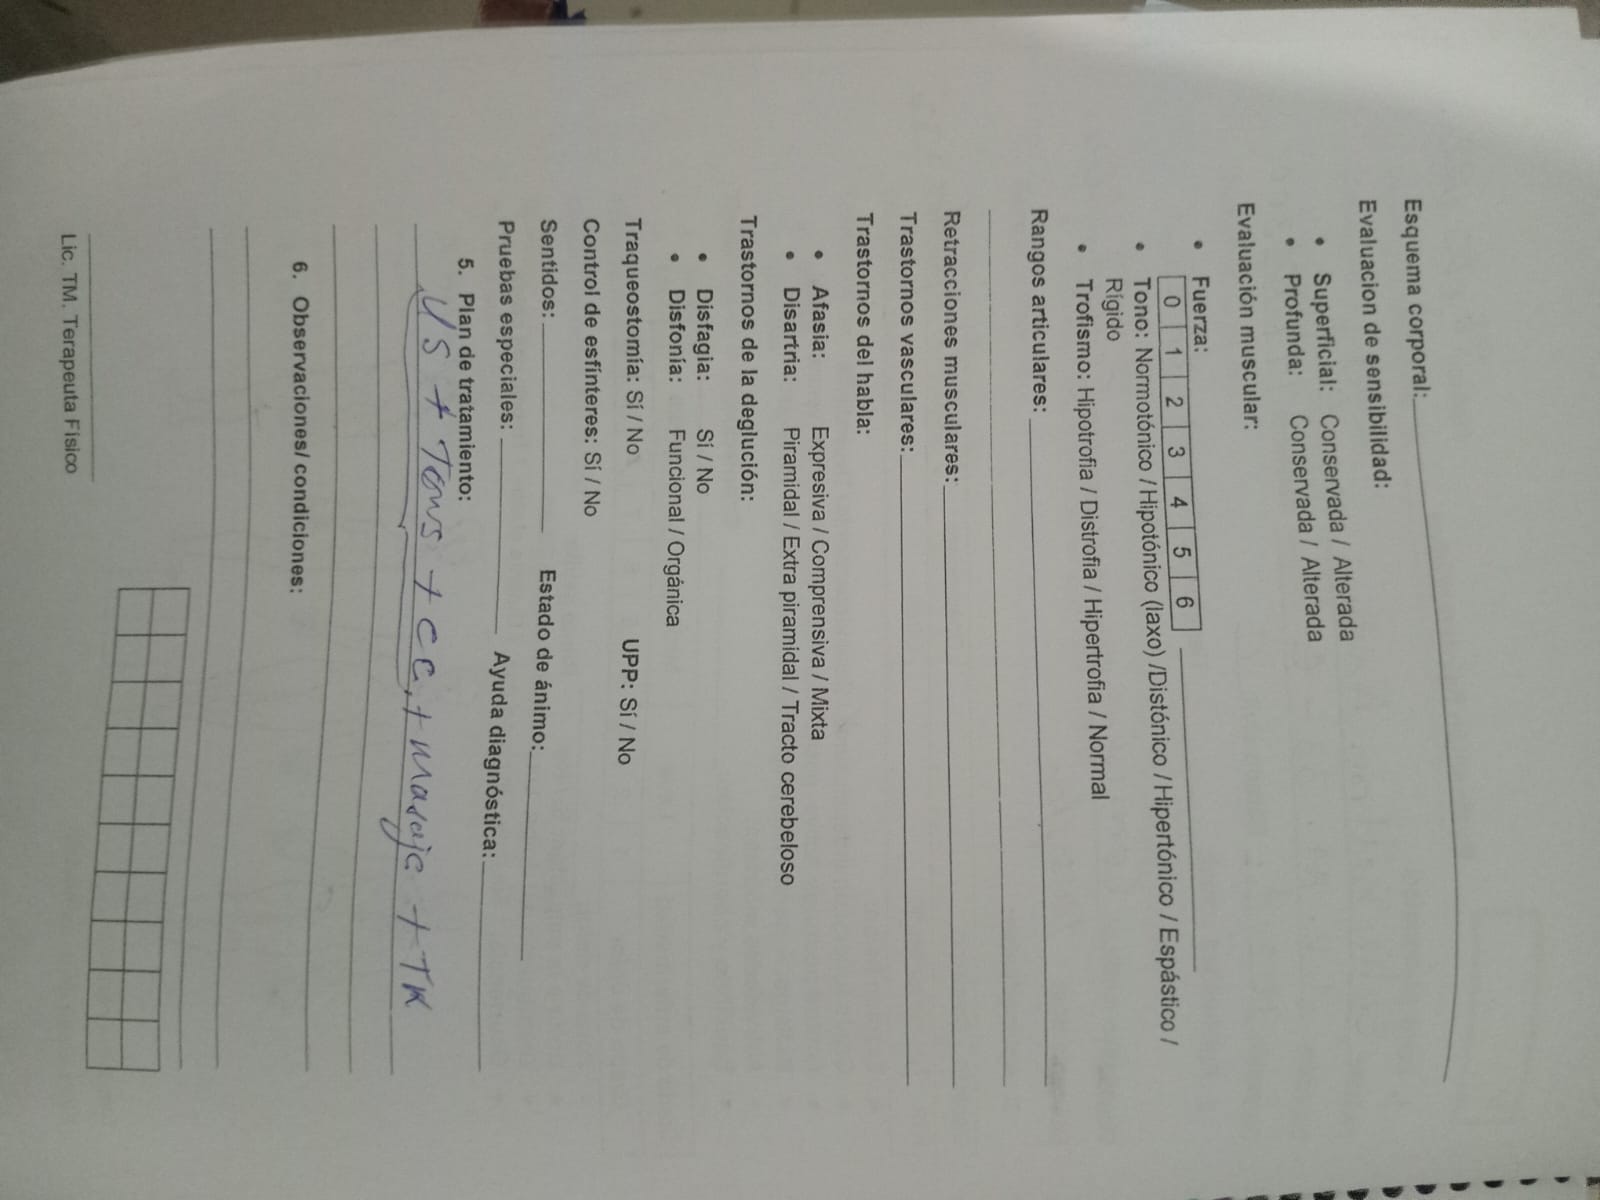 Esquema corporal:
Evaluacion de sensibilidad:
• Superficial: Conservada / Alterada
• Profunda: Conservada / Alterada
Evaluación muscular:
• Fuerza:
0 1 2 3 4 5 6
• Tono: Normotónico / Hipotónico (laxo) /Distónico / Hipertónico / Espástico /
Rígido
• Trofismo: Hipotrofia / Distrofia / Hipertrofia / Normal
Rangos articulares:
Retracciones musculares:
Trastornos vasculares:
Trastornos del habla:
• Afasia: Expresiva / Comprensiva / Mixta
• Disartria: Piramidal / Extra piramidal / Tracto cerebeloso
Trastornos de la deglución:
• Disfagia: Sí / No
• Disfonía: Funcional / Orgánica
Traqueostomía: Sí / No UPP: Sí / No
Control de esfínteres: Sí / No
Sentidos: Estado de ánimo:
Pruebas especiales: Ayuda diagnóstica:
5. Plan de tratamiento:
US + Tens + CC + masaje + TK
6. Observaciones/ condiciones:
Lic. TM. Terapeuta Físico